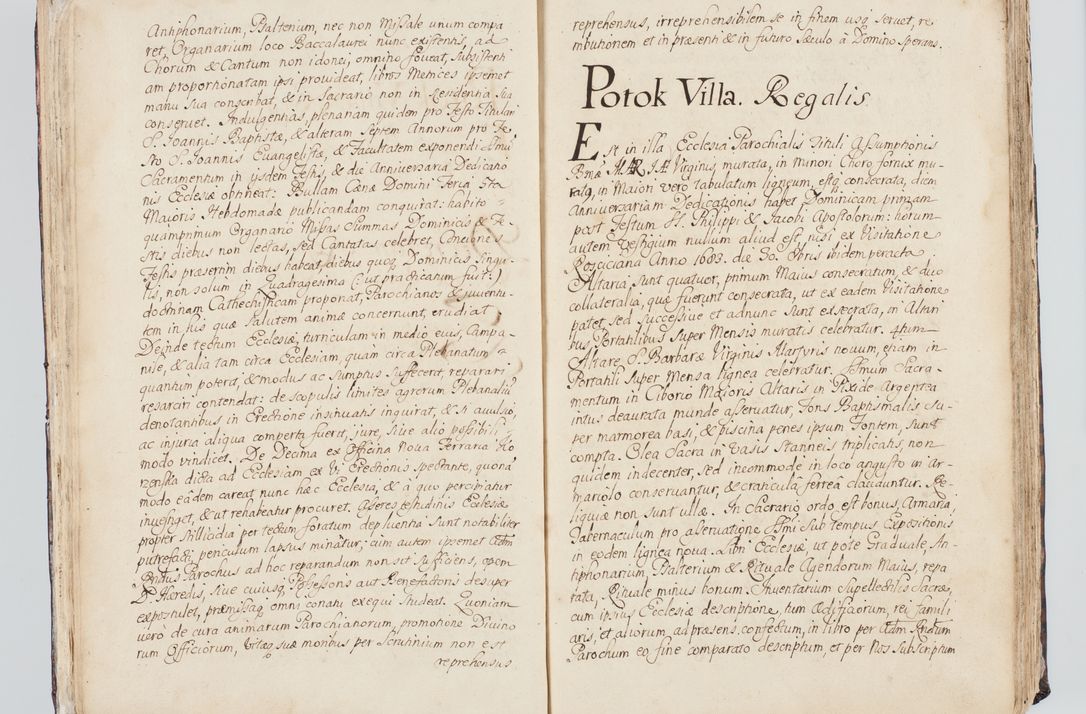 Antiphonarium, Psalterium, nec non Missale unum compa
ret, Organarium loco Baccalaurei nunc existentis, ad
Chorum & Cantum non idonei, omnino foveat, subsistenti
am proportionatam ipsi provideat, libros Metrices ipsemet
manu sua conscribat, & in Sacrario non in Residentia sua
conservet. Indulgentias, plenariam quidem pro Festo Titulari
S. Joannis Baptistæ, & alteram Septem Annorum pro Fe,
sto S. Joannis Evangelistæ, & Facultatem exponendi SSmi
Sacramentum in ijsdem Festis, & die Anniversaria Dedicatio
nis Ecclesiæ obtineat: Bullam Cænæ Domini Feria 5ta
Maioris Hebdomadæ publicandam conquirat: habito
quamprimum Organario Missas Summas Dominicis & Fe,
stis diebus non lectas, sed Cantatas celebret, Conciones
Festis præsertim diebus habeat, diebus quoq Dominicis singu
lis, non solum in Quadragesima (:ut practicatum fuit:)
doctrinam Cathechisticam proponat, Parochianos & iuventu-
tem in ijs quæ salutem animæ concernunt, erudiat
Deinde tectum Ecclesiæ, turriculam in medio eius, Campa-
nile, & alia tam circa Ecclesiam, quam circa Plebanatum
quantum poterit, & modus ac sumptus suffecerit, reparari
resarciri contendat: de scopulis limites agrorum Plebanaliu
denotantibus in Erectione insinuatis inquirat, & si avulsio,
ac injuria aliqua comperta fuerit, jure, sive alio possibili
modo vindicet. De Decima ex Officina Nova Ferraria
dicta ad Ecclesiam ex Vi Erectionis spectante, quonã
modo eâdem careat nunc hæc Ecclesia, & à quo percipiatur
investiget, & ut rehabeatur procuret. Asseres testudinis Ecclesiæ
propter stillicidia per tectum foratum depluentia sunt notabiliter
putrefacti, periculum lapsus minãtur; cùm autem ipsemet Adm
Rndus Parochus ad hoc reparandum non sit sufficiens, opem
D. Hæredis, sive cuiusq Possessoris aut Benefactoris desuper
expostulet, præmissaq omni conatu exequi studeat. Quoniam
verò de cura animarum Parochianorum, promotione Divino
rum Officiorum, vitaq suæ moribus per Scrutinium non est
reprehensus
reprehensus, irreprehensibilem se in finem usq servet, re
tributionem et in præsenti & in futuro Sæculo à Domino sperans.
Potok Villa. Regalis
Est in illa Ecclesia Parochialis Tituli Assumptionis
Bmæ MARIÆ Virginis, murata, in minori Choro fornice mu-
rata, in Maiori verò tabulatum ligneum, estq consecrata, diem
Anniversariam Dedicationis habet Dominicam primam
post Festum SS. Philippi & Jacobi Apostolorum: horum
autem vestigium nullum aliud est, nisi ex Visitatione
Anno 1603. die 30. 8bris ibidem peracta
Altaria sunt quatuor, primum Maius consecratum, & duo
collateralia, quæ fuerunt consecrata, ut ex eadem Visitatione
patet, sed successivè et adnunc sunt execrata, in Altari
bus, Portatilibus super Mensis muratis celebratur. 4tum
Altare S. Barbaræ Virginis Martyris novum, etiam in
Portatili super Mensa lignea celebratur. SSmum Sacra-
mentum in Ciborio Maioris Altaris in Pixide Argentea
intus deaurata munde asservatur, Fons Baptismalis su-
per marmorea basi, & piscina penes ipsum Fontem, sunt
compta. Olea Sacra in Vasis Stanneis triplicatis, non
quidem indecenter, sed incommodè in loco angusto in ar-
mariolo conservantur, & craticulâ ferreâ clauduntur. Re-
liquiæ non sunt ullæ. In Sacrario ordo est bonus, Armaria,
Tabernaculum pro asservatione SSmi sub tempus Expositionis
in eodem lignea nova. Libri Ecclesiæ, ut pote Graduale, An-
tiphonarium, Psalterium & Rituale Agendorum Maius, repa
rata, Rituale minus bonum. Inventarium supellectilis sacræ,
cum ipsius Ecclesiæ descriptione, tum ædificiorum, rei famili
aris, et aliorum ad præsens confectum, in libro per Adm Rndum
Parochum eo fine comparato descriptum, et per Nos subscriptum